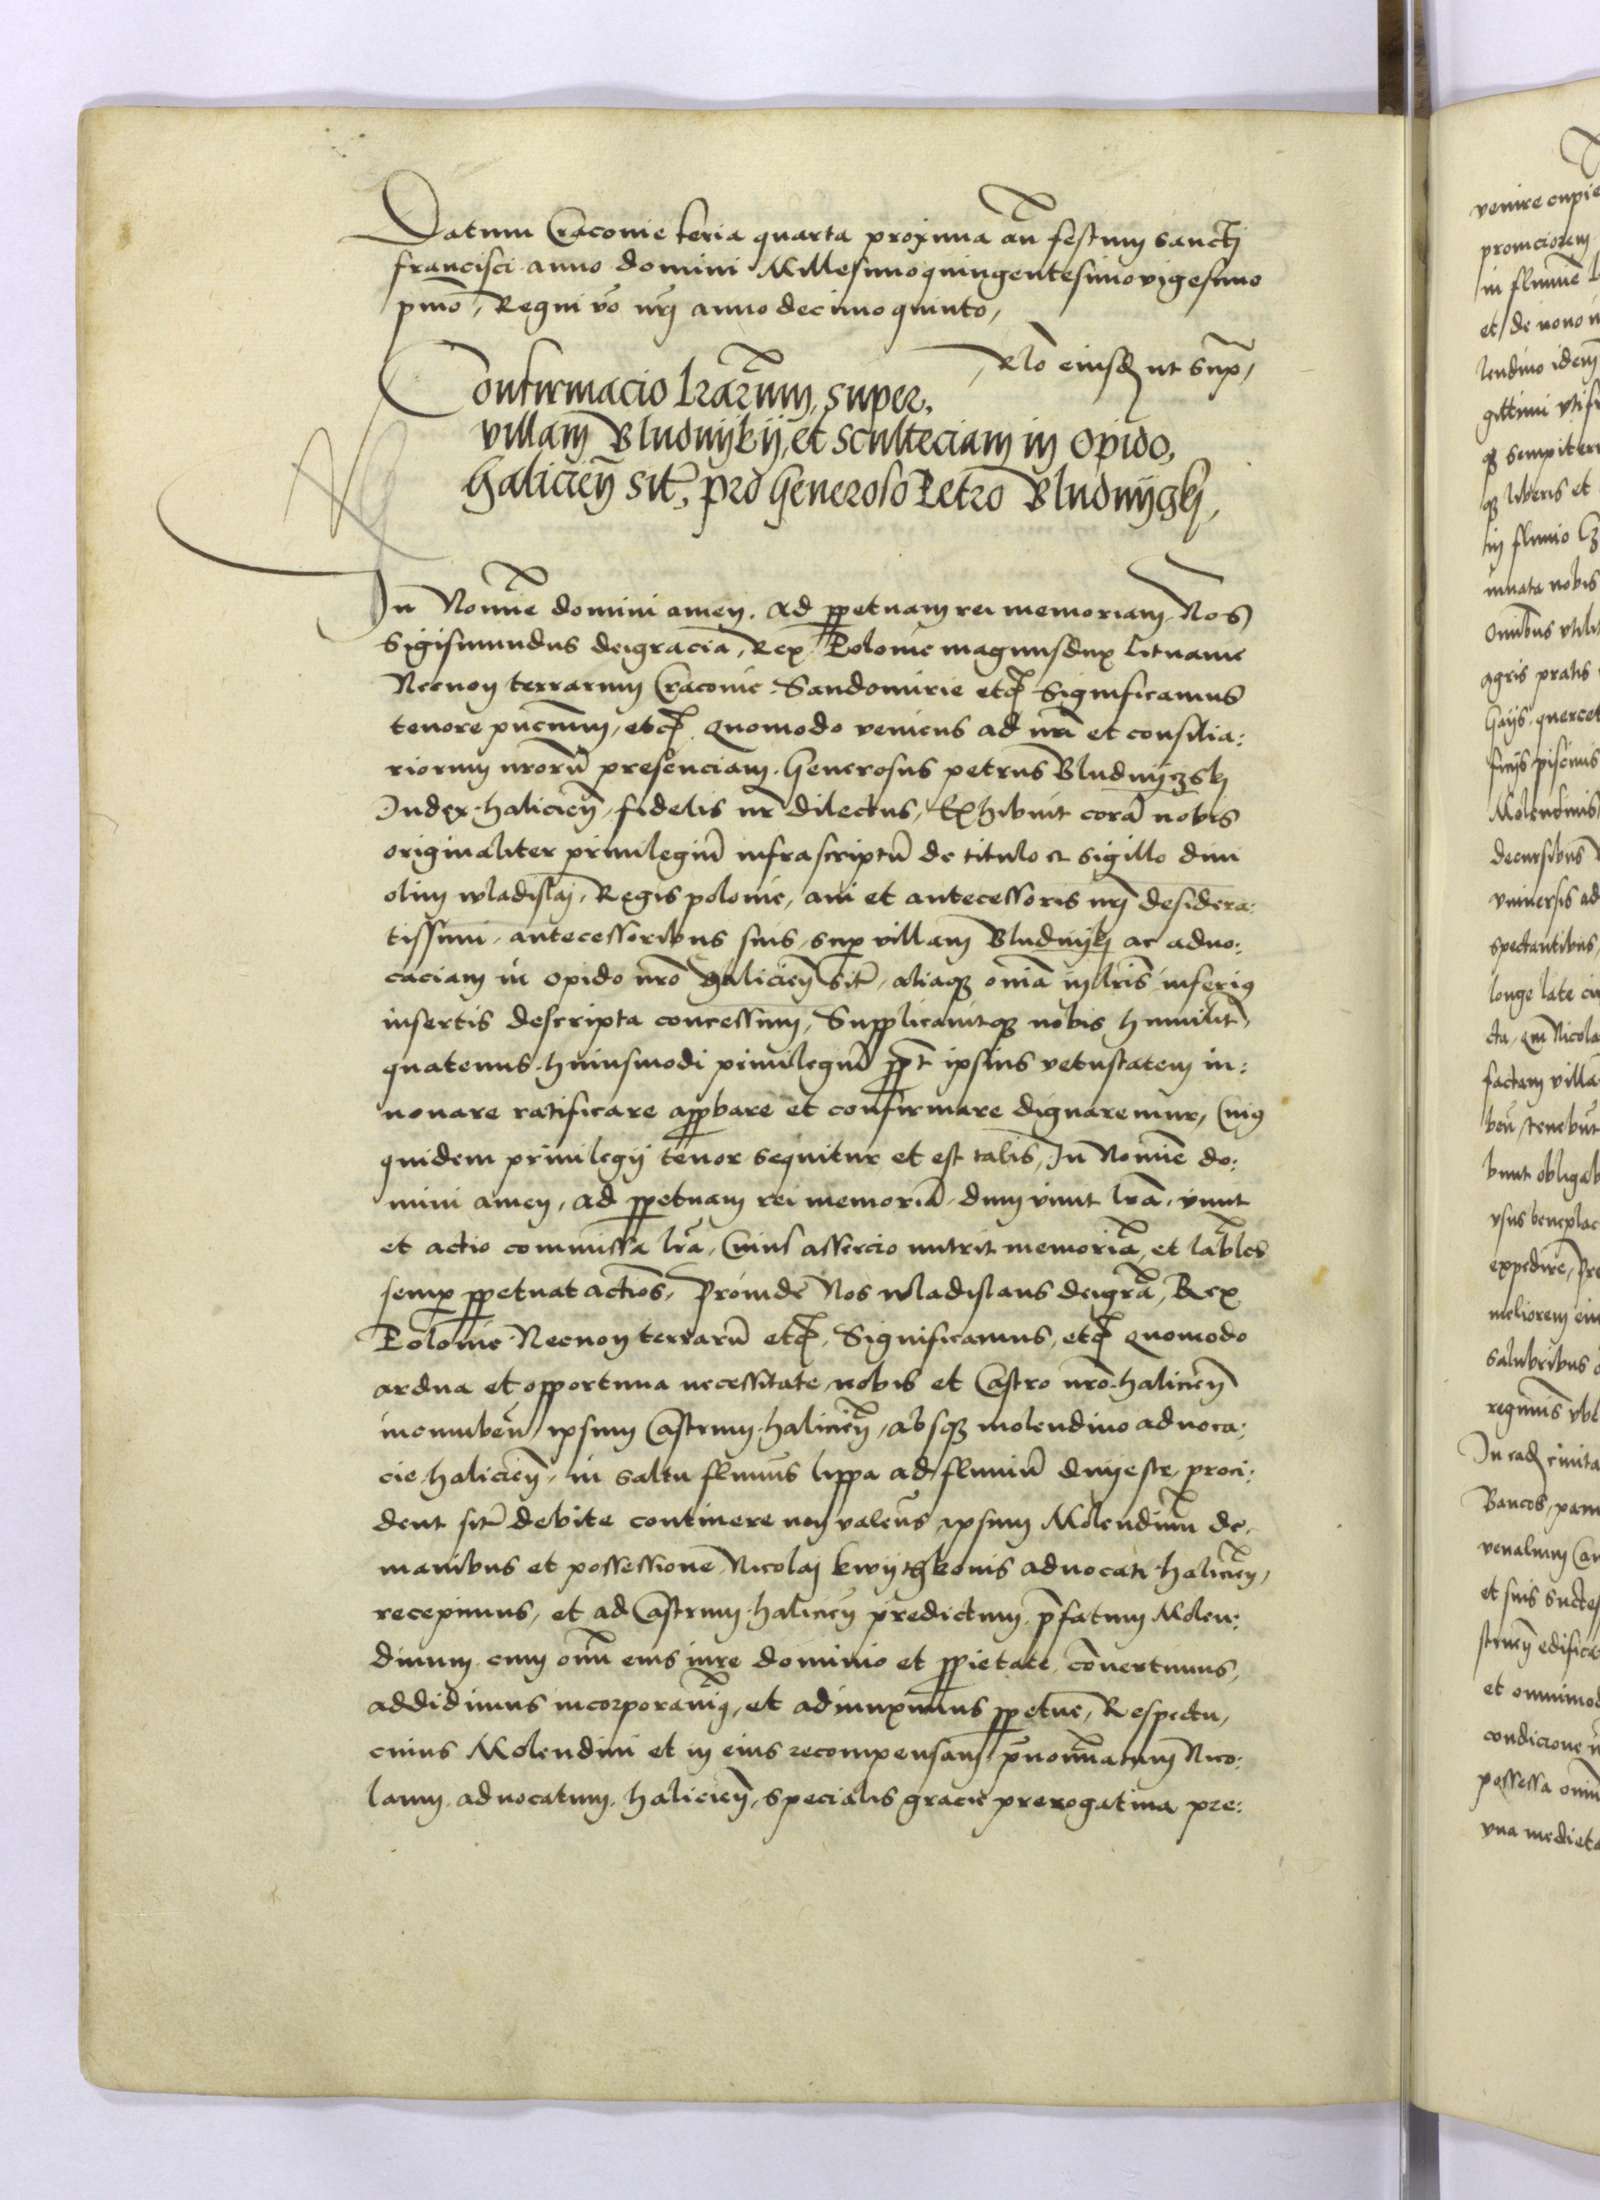 Datum Cracovie feria quarta proxima an̄ festum sancti
francisci anno domini Millesimoquingentesimovigesimo
pmo, Regni vo nri anno decimoquinto,
Rlo eiusd ut sup,
Confirmacio lrarum, super,
villam Bludnyky, et sculteciam in opido,
Haliciēn sit, pro Generoso Petro Bludnyczky,
In Nomie domini amen. ad ppetuam rei memoriam Nos
Sigismundus deigracia, Rex Polonie magnusdux Lituanie
Necnon terrarum Cracovie Sandomirie etc Significamus
tenore pncium, etc. Quomodo veniens ad nrā et consilia:
riorum nrorū presenciam. Generosus petrus Bludnyczsky
Iudex haliciēn, fidelis nr dilectus, Exhibuit corā nobis
originaliter privilegiū infrascriptū de titulo et sigillo divi
olim wladislai, Regis polonie, avi et antecessoris nri desidera:
tissimi, antecessoribus suis, sup villam Bludnyky ac advo:
caciam in opido nro haliciēn sit, aliaque omia in lris inferius
insertis descripta concessum, Supplicavitque nobis humilit,
quatenus huiusmodi privilegiū ppt ipsius vetustatem in:
novare ratificare approbare et confirmare dignaremur, Cuius
quidem privilegii tenor sequitur et est talis, In Nomine do:
mini amen, ad ppetuam rei memoriā, dum vivit lrā, vivit
et actio commissa lrā, Cuius assercio nutrit memoriā, et labiles
semp ppetuat actiōs, Proinde Nos wladislaus deigrā, Rex
Polonie Necnon terrarū etc, Significamus, etc Quomodo
ardua et opportuna necessitate, nobis et Castro nro haliciēn
incumbeñ, ipsum Castrum haliciēn, absque molendino advoca:
cie haliciēn, in saltu fluvius lippa ad fluviū dnyestr, proci:
dent sit debite continere non valeñs, ipsum Molendinū de
manibus et possessione Nicolai kwythkonis advocati haliciēn,
recepimus, et ad Castrum haliciēn predictum, pfatum Molen:
dinum cum omi eius iure dominio et pprietate, convertimus,
addidimus incorporavimus, et adiunximus ppetue, Respectu,
cuius Molendini et in eius recompensam, pnominatum Nico:
laum advocatum, haliciēn, specialis gracie prerogativa pre:
venire cupie
in flumine
et de novo
lendino idem
sempitern
liberis et
nobis
agris pratis
Gays quercet
piscinis
Molendinis
decursibus
universis ad
spectantibus,
longe late
Nicola
factam villa
tenebūt
bunt obligab
usus beneplac
expedire, Pre
meliorem eiu
salubribus
In ead civita
Bancos, pani
venalium Ca
et suis succes
edifica
et omnimod
condicione
possessa
una medieta